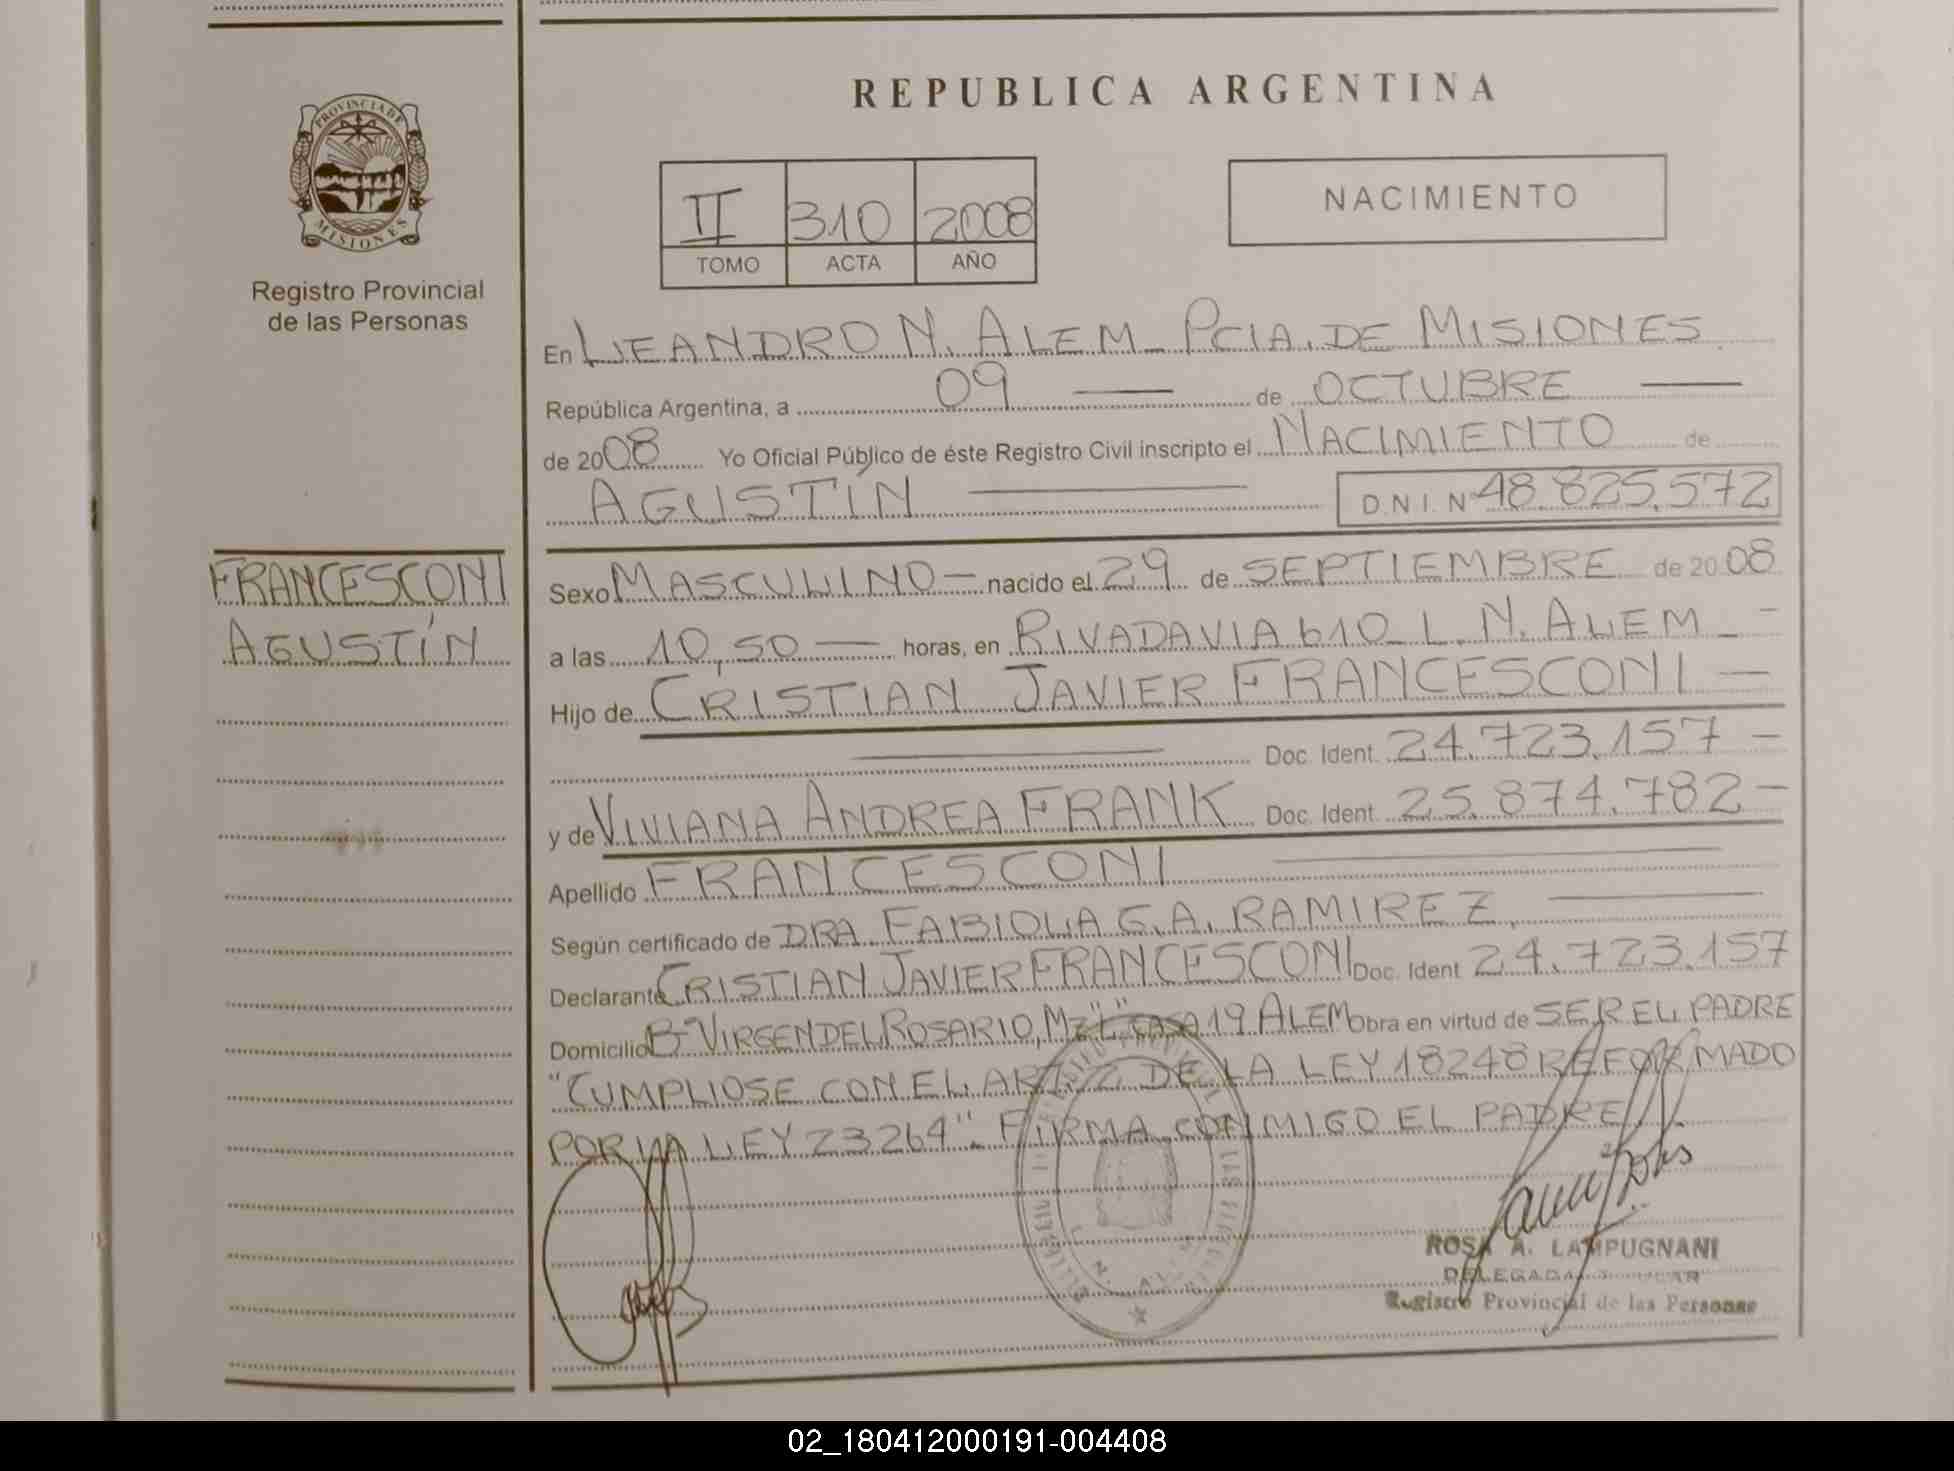 REPUBLICA ARGENTINA
PROVINCIA DE
MISIONES
Registro Provincial
de las Personas
II 310 2008
TOMO ACTA AÑO
NACIMIENTO
En LEANDRO N. ALEM_ PCIA. DE MISIONES
República Argentina, a 09 de OCTUBRE
de 2008 Yo Oficial Público de éste Registro Civil inscripto el NACIMIENTO de
AGUSTÍN D.N.I. Nº 48.825.572
FRANCESCONI
AGUSTÍN
Sexo MASCULINO nacido el 29 de SEPTIEMBRE de 2008
a las 10,50 horas, en RIVADAVIA 610_ L. N. ALEM_
Hijo de CRISTIAN JAVIER FRANCESCONI
Doc. Ident. 24.723.157
y de VIVIANA ANDREA FRANK Doc. Ident. 25.874.782
Apellido FRANCESCONI
Según certificado de DRA. FABIOLA G.A. RAMIREZ
Declarante CRISTIAN JAVIER FRANCESCONI Doc. Ident 24.723.157
Domicilio Bº VIRGEN DEL ROSARIO, MZ "L" CASA 19 ALEM Obra en virtud de SER EL PADRE
"CUMPLIOSE CON EL ART. DE LA LEY 18248 REFORMADO
POR LA LEY 23264". FIRMA CONMIGO EL PADRE
ROSA A. LAMPUGNANI
DELEGADA
Registro Provincial de las Personas
02_180412000191-004408